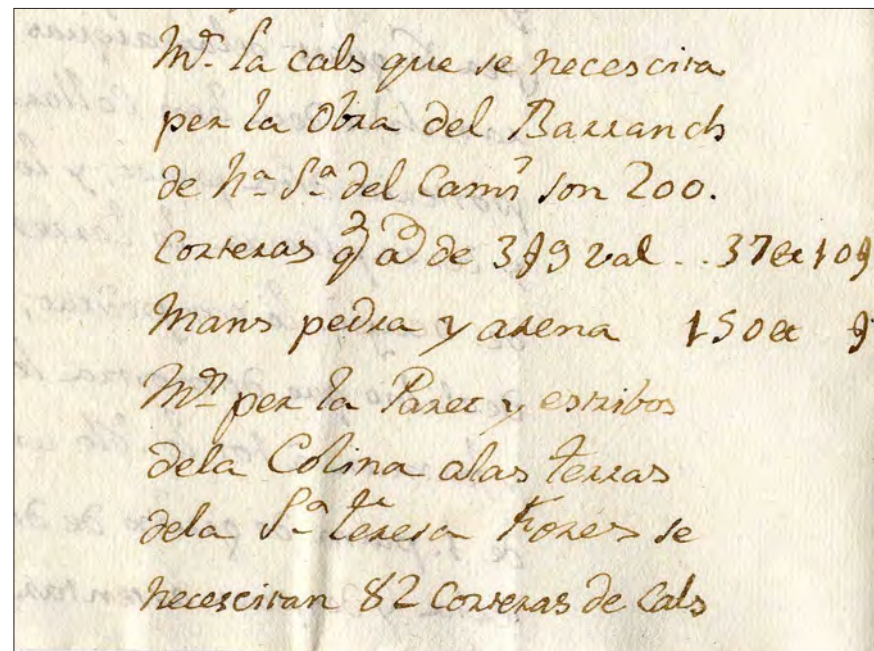 Mᵗ. la cals que se necescita
per la Obra del Barranch
de Nª Sª del Camí son 200.
Corteras qᵉ a de 3 9 val .. 37 10
Mans pedra y arena 150
Mᵗ per la Paret y estribos
dela Colina alas terras
dela Sª teresa Fores se
necescitan 82 Corteras de Cals